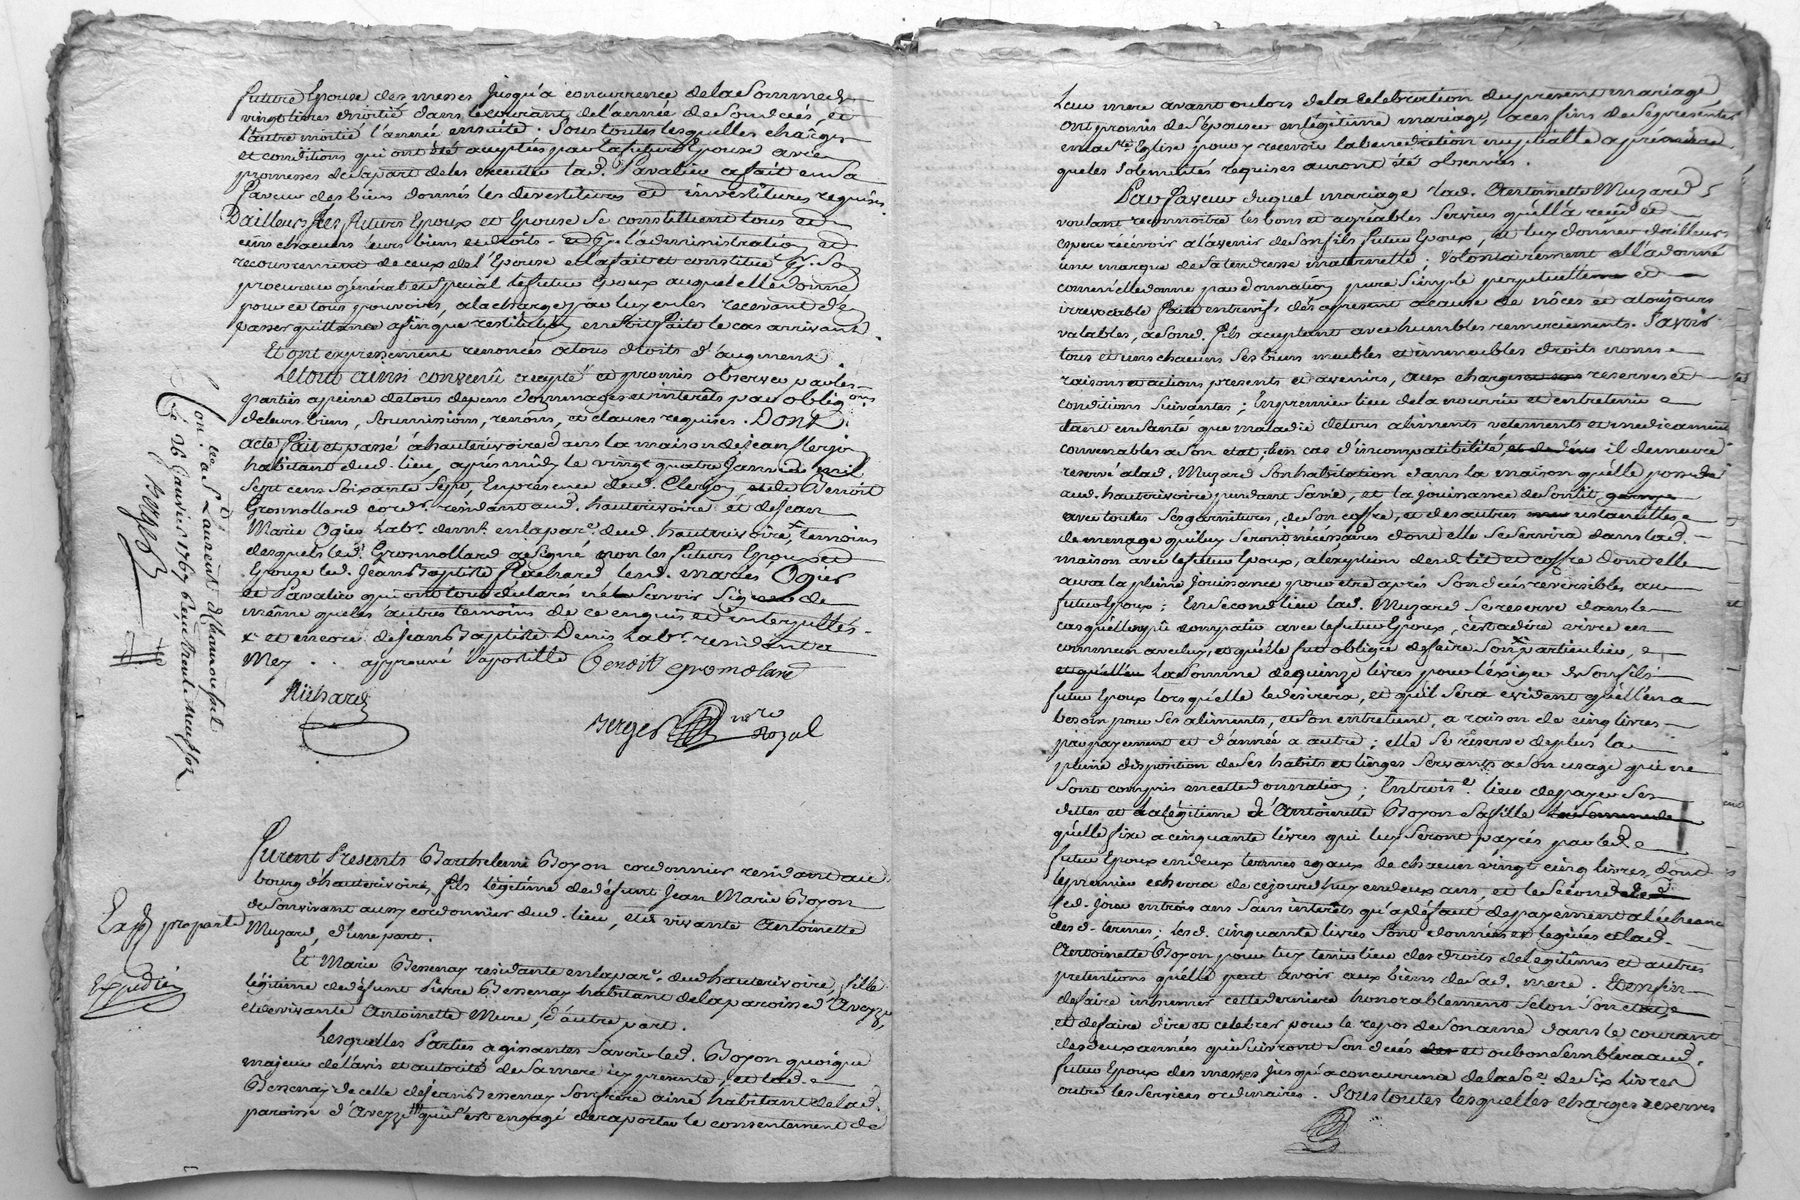 future Epouse des messes jusqu'a concurrence de la somme de
vingt livres moitié dans le courant de l'année de son decés, et
l'autre moitié l'année ensuite. Sous toutes lesquelles charges
et conditions qui ont été acceptées par la future Epouse avec
promesses de sa part de les executer lad. Pavalier a fait en sa
faveur des biens donnés les devestitures et investitures requises.
D'ailleurs les futurs Epoux et Epouse se constituent tous et
uns chacuns leurs biens et droits - et p.r l'administration et
recouvrement de ceux de l'Epouse elle a fait et constitué p.r son
procureur général et spécial le futur Epoux auquel elle donne
pour ce tous pouvoirs, a la charge par luy en les recevant d'en
passer quittance afin que restitution en soit faite le cas arrivant
Et ont expressement renoncés a tous droits d'augment.
Le tout ainsi convenû accepté et promis observer par les
parties a peine de tous depens dommages et interêts par oblig.ons
de leurs biens, soumissions, renons, et clauses requises. Dont
acte fait et passé á hauterivoire dans la maison de jean Clerjon
habitant dud. lieu, apres midy le vingt quatre Janvier mil
sept cens soixante sept, En présence dud. Clerjon, et de Benoit
Gromollard cord.r residant aud. hauterivoire et de jean
Marie Ogier lab.r demt. en la par.e dud. hauterivoire, x temoins
desquels led. Gromollard a signé non les futurs Epoux et
Epouse led. Jean Baptiste Richard lesd. mariés Ogier
et Pavalier qui ont tous declarés ne savoir signer de
même que les autres temoins de ce enquis et interpellés.
x et encore de jean Baptiste Denis lab.r residant a
Mey . . approuvé l'apostille Benoit gromolard
Richard
Berger no.re Royal
Con.lé a S.t Laurent de Chamousset
le 26 Janvier 1767 Reçu trente neuf sols
Berger
Furent Presents Barthelemi Boyon cordonnier residant au
bourg d'hauterivoire, fils légitime de défunt Jean Marie Boyon
de son vivant aussy cordonnier dud. lieu, et de vivante Antoinette
Muzard, d'une part.
Exp.é pro parte
Expedié
Et Marie Bessenay residante en la par.e dud. hauterivoire, fille
légitime de défunt Pierre Bessenay habitant de la paroisse d'Aveyze,
et de vivante Antoinette Mure, d'autre part.
Lesquelles Parties agissantes savoir led. Boyon quoique
majeur de l'avis et autorité de sa mere icy presente, et lad.
Bessenay de celle de jean Bessenay son frere ainé habitant de lad.
paroisse d'Aveyze qui s'est engagé de raporter le consentement de
Leur mere avant ou lors de la celebration du present mariage
ont promis de s'épouser en légitime mariage, a ces fins de se présenter
en la S.te Eglise pour y recevoir la benediction nuptialle a premiere
que les solemnités requises auront été observées.
En faveur duquel mariage lad. Antoinette Muzard
voulant reconnoitre les bons et agréables services qu'elle a reçu et
espere recevoir a l'avenir de son fils futur Epoux, et luy donner d'ailleurs
une marque de sa tendresse maternelle. Volontairement elle a donné
comme elle donne par donnation pure simple perpetuelle et
irrevocable faite entrevifs, dés apresent a cause de nôces et a toujours
valables, a sond. fils aceptant avec humbles remerciements. Savoir
tous et uns chacuns ses biens meubles et immeubles droits noms
raisons et actions presents et avenirs, aux charges reserves et
conditions suivantes; En premier lieu de la nourrir et entretenir
tant en santé que maladie de tous aliments vetements et medicaments
convenables a son etat, en cas d'incompatibilité il demeure
reservé a lad. Muzard son habitation dans la maison qu'elle possede
aud. hauterivoire pendant sa vie, et la jouissance de son lit
avec toutes ses garnitures, de son coffre, et des autres ustancilles
de menage qui luy seront nécéssaires dont elle se servira dans lad.
maison avec le futur Epoux, a l'exeption dud. lit et coffre dont elle
aura la pleine jouissance pour etre aprés son decés reversible au
futur Epoux; En second lieu lad. Muzard se reserve dans le
cas qu'elle ne pû compatir avec le futur Epoux, c'est a dire vivre en
commun avec luy, et qu'elle fut obligée de faire son x particulier,
la somme de quinze livres pour l'exiger de son fils
futur Epoux lors qu'elle le desirera, et qu'il sera evident qu'elle en a
besoin pour ses aliments, et son entretient, a raison de cinq livres
par payement et d'année a autre; elle se reserve de plus la
pleine disposition de ses habits et linges servants a son usage qui ne
sont compris en cette donnation; En trois.e lieu de payer ses
dettes et la légitime d'Antoinette Boyon sa fille la somme de
qu'elle fixe a cinquante livres qui luy seront payées par led.
futur Epoux en deux termes egaux de chacun vingt cinq livres, dont
le premier echerra de ce jourdhuy en deux ans, et le second
led. jour en trois ans sans interêts qu'a défaut de payement a l'echeance
desd. termes; lesd. cinquante livres sont données et leguées a lad.
Antoinette Boyon pour luy tenir lieu des droits de legitimes et autres
pretentions qu'elle peut avoir aux biens de sad. mere. Et enfin
de faire inhumer cette derniere honorablement selon son etat,
et de faire dire et celebrer pour le repos de son ame dans le courant
des deux années qui suivront son decés et ou bon semblera aud.
futur Epoux des messes jusqu'a concurrence de la so.e de six livres
outre les services ordinaires. Sous toutes lesquelles charges reserves